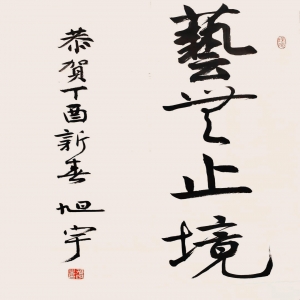 藝無止境
恭賀丁酉新春 旭宇